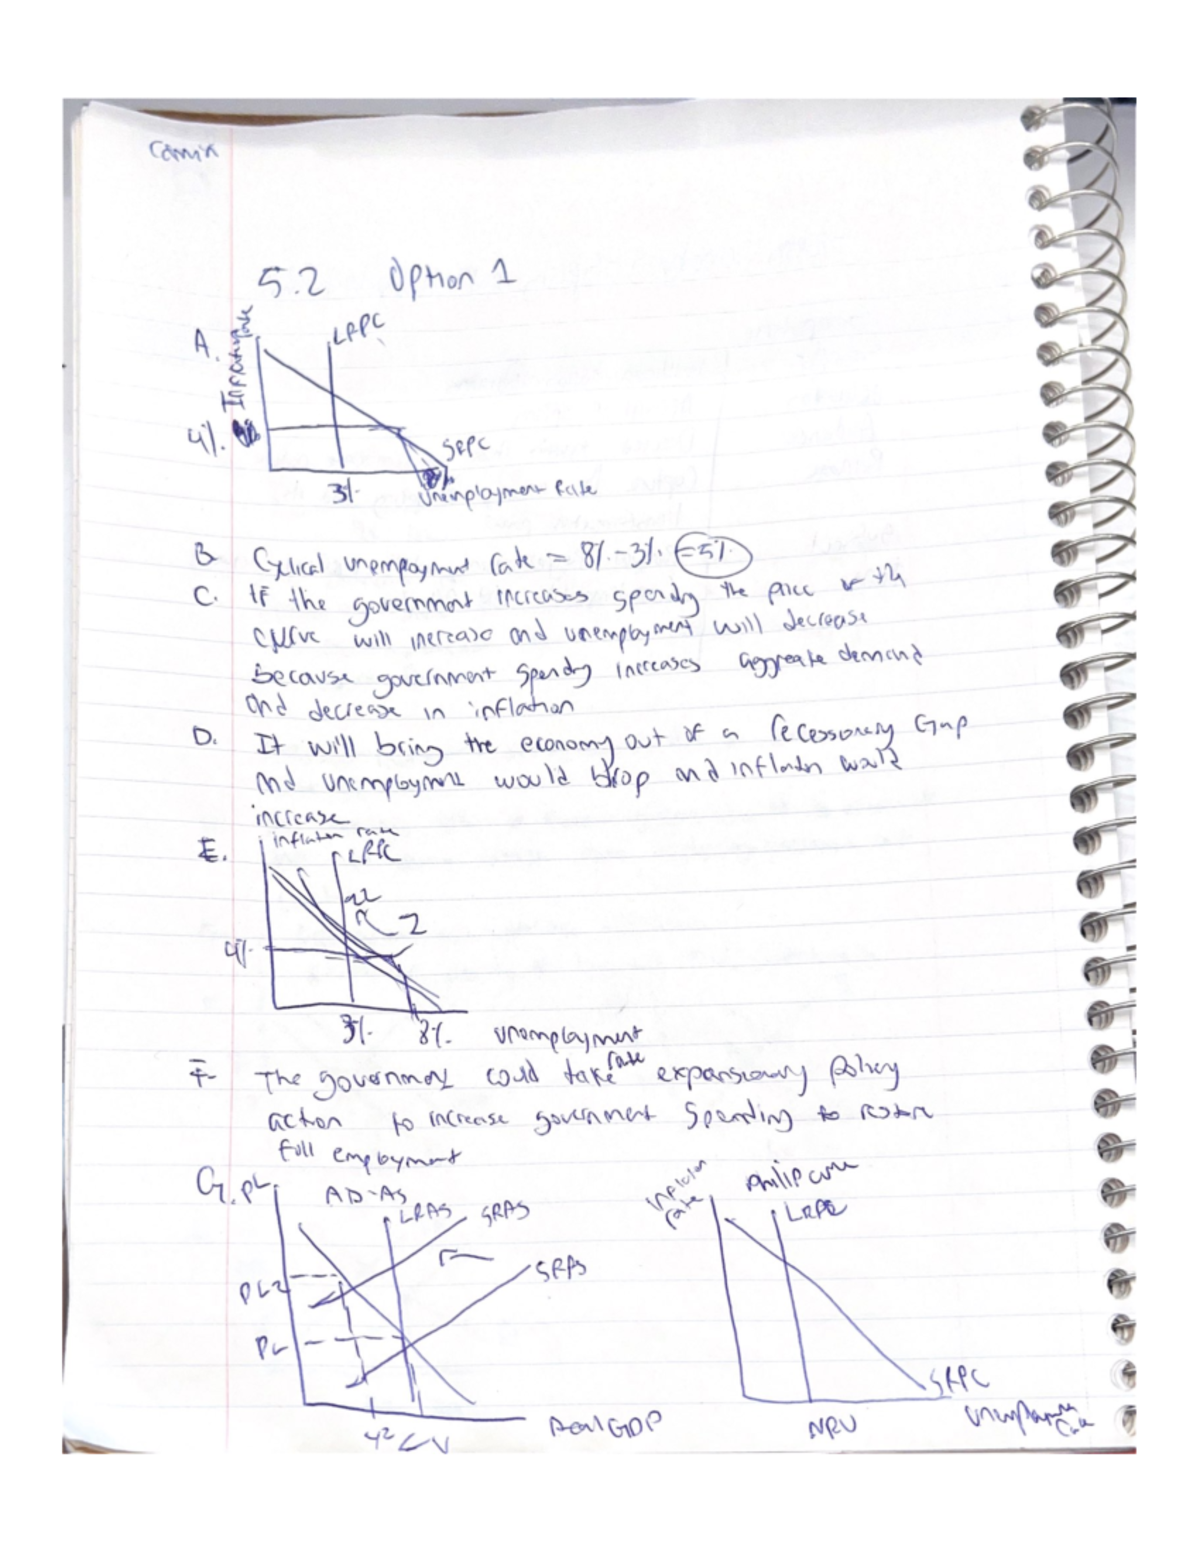 5.2 Option 1
A.
Inflation Rate
LRPC
4%.
SRPC
3%
Unemployment Rate
B Cyclical unempoyment rate = 8%.-3%. =5%.
C. If the government increases spendng the price
curve will increase and unemployment will decrease
because government spendng increases aggreate demand
and decrease in inflation
D. It will bring the economy out of a recessonery Gap
and unemployment would drop and inflaton would
increase
E.
inflaton rate
LRPC
2
4%
3%. 8%. unemployment
rate
F The government could take expansionary policy
action to increase government Spending to restore
full employment
G. PL
AD-AS
LRAS SRAS
SRAS
PL2
PL
Y2
Real GDP
inflation
rate
Philip curve
LRPC
SRPC
NRU